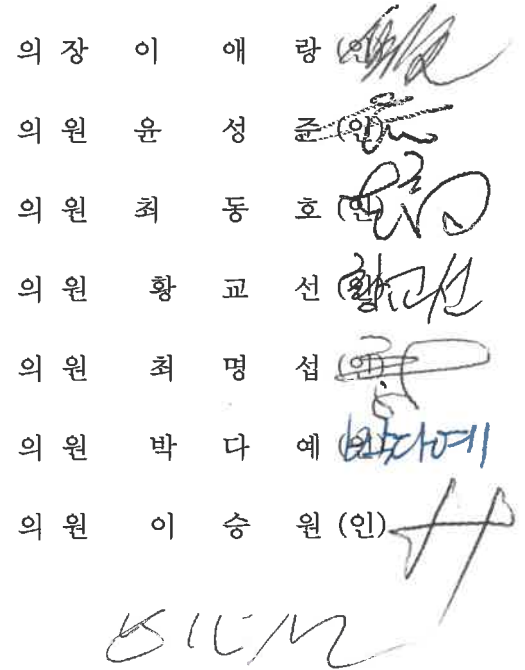 의 장 이 애 랑 (인)
의 원 윤 성 준 (인)
의 원 최 동 호 (인)
의 원 황 교 선 (인) 황교선
의 원 최 명 섭 (인)
의 원 박 다 예 (인) 박다예
의 원 이 승 원 (인)